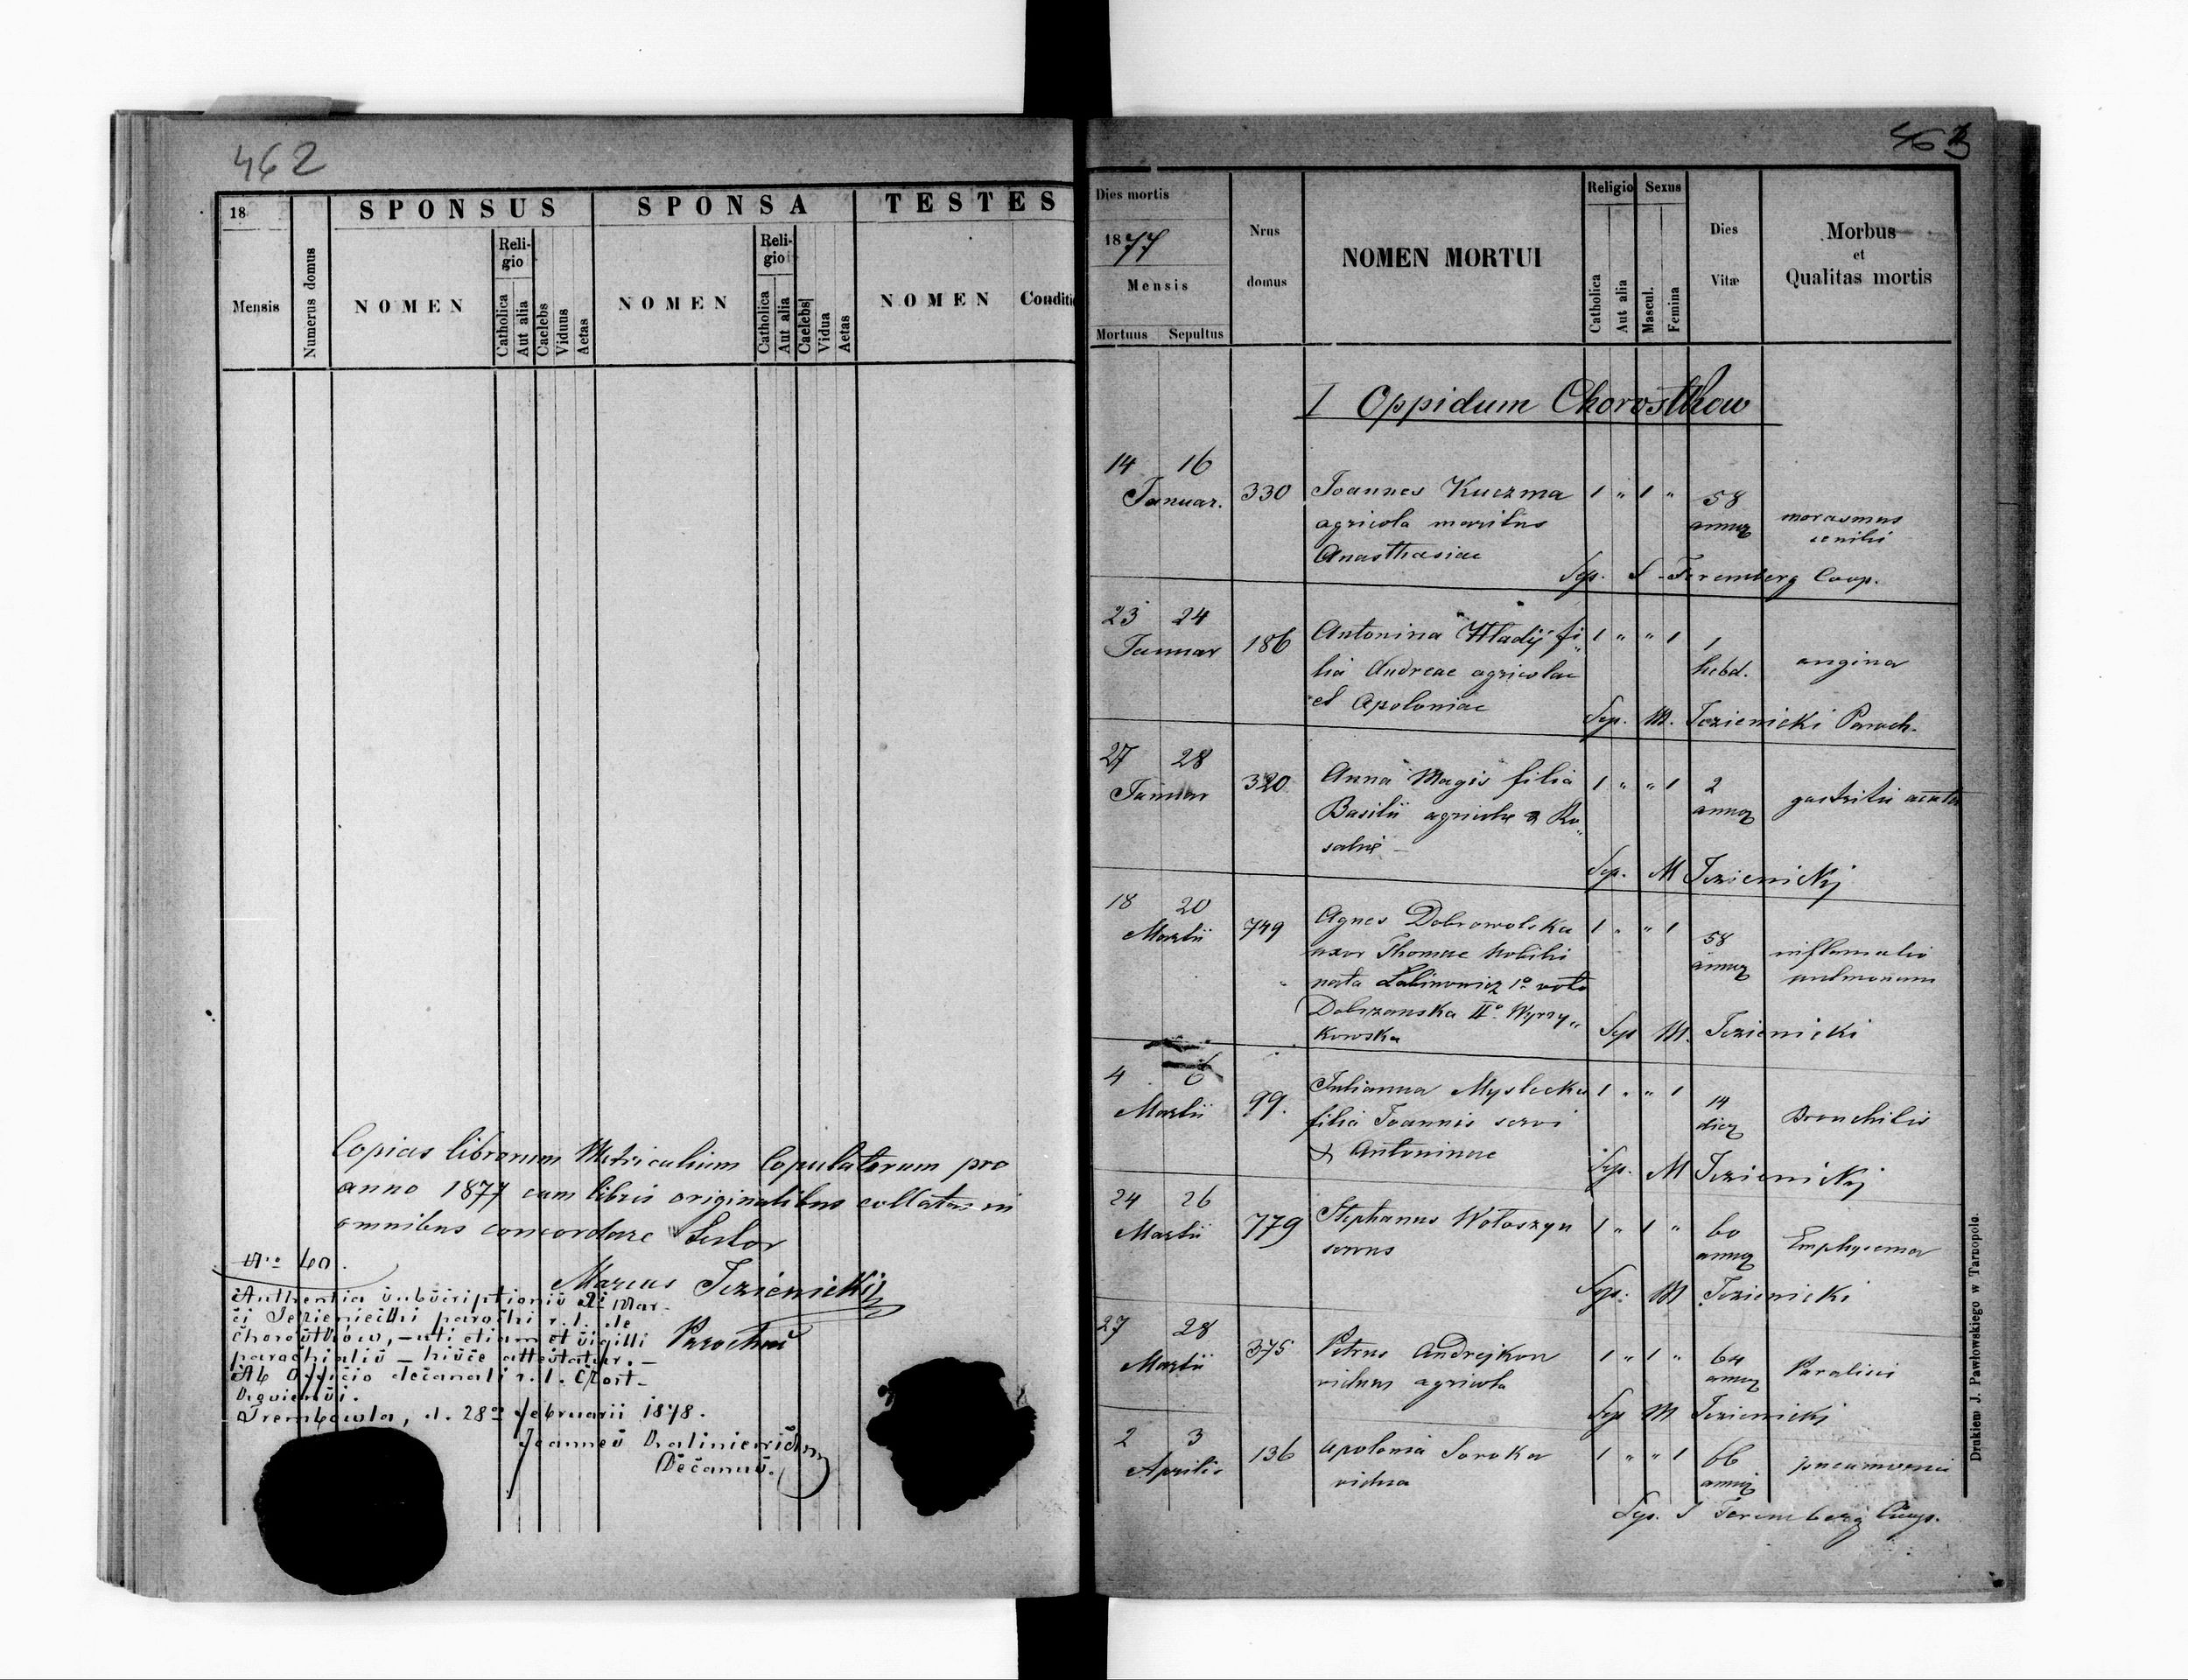 462
18
SPONSUS
SPONSA
TESTES
Mensis
Numerus domus
NOMEN
Religio
Catholica
Aut alia
Caelebs
Viduus
Aetas
NOMEN
Religio
Catholica
Aut alia
Caelebs
Vidua
Aetas
NOMEN
Conditi
Copias librorum Metricalium Copulatorum pro
anno 1877 cum libris originalibus collatas in
omnibus concordare testor
Marcus Jezienickij
Parochus
Nro 60.
Authentia subscriptionis Di Mar-
ci Jezieniecki parochi r. l. de
Chorostków, – uti etiam et sigilli
parochialis – hisce attestatur. –
Ab Officio decanali r. l. Czort-
Trembowla, d. 28a februarii 1878.
Joannes
Decanus.
463
Dies mortis
1877
Mensis
Mortuus Sepultus
Nrus
domus
NOMEN MORTUI
Religio
Catholica
Aut alia
Sexus
Mascul.
Femina
Dies
Vitæ
Morbus
et
Qualitas mortis
I Oppidum Chorostkow
14 16
Januar. 330 Joannes Kuczma 1 " 1 " 58
agricola maritus annoꝝ marasmus
Anasthasiae senilis
Sep. S. Feremberg Coop.
23 24
Januar 186 Antonina Hladij fi 1 " " 1 1
lia Andreae agricolae hebd. angina
et Apoloniae
Sep. M. Jezienicki Paroch.
27 28
Januar 320 Anna Magis filia 1 " " 1 2
Basilii agricolæ & Ro annoꝝ gastritis acuta
saliæ –
Sep. M Jezienickij
18 20
Martii 749 Agnes Dobrowolska 1 " " 1 58
uxor Thomae nobilis annoꝝ inflamatio
nata 1o voto pulmonum
Dobrzanska IIo Wyrzy„
kowska
Sep M. Jezienicki
4 6
Martii 99. Julianna Myslecka 1 " " 1 14
filia Joannis servi dieꝝ Bronchitis
& Antoninae
Sep. M Jezienickij
24 26
Martii 779 Stephanus Wołoszyn 1 " 1 " 60
servus annoꝝ Emphysema
Sep. M Jezienicki
27 28
Martii 375 Petrus Andrejkow 1 " 1 " 64
viduus agricola annoꝝ Paralisis
Sep M Jezienickj
2 3
Aprilis 136 Apolonia Soroka 1 " " 1 66
vidua annoꝝ
Sep. S Feremberg Coop.
Drukiem J. Pawłowskiego w Tarnopolu.